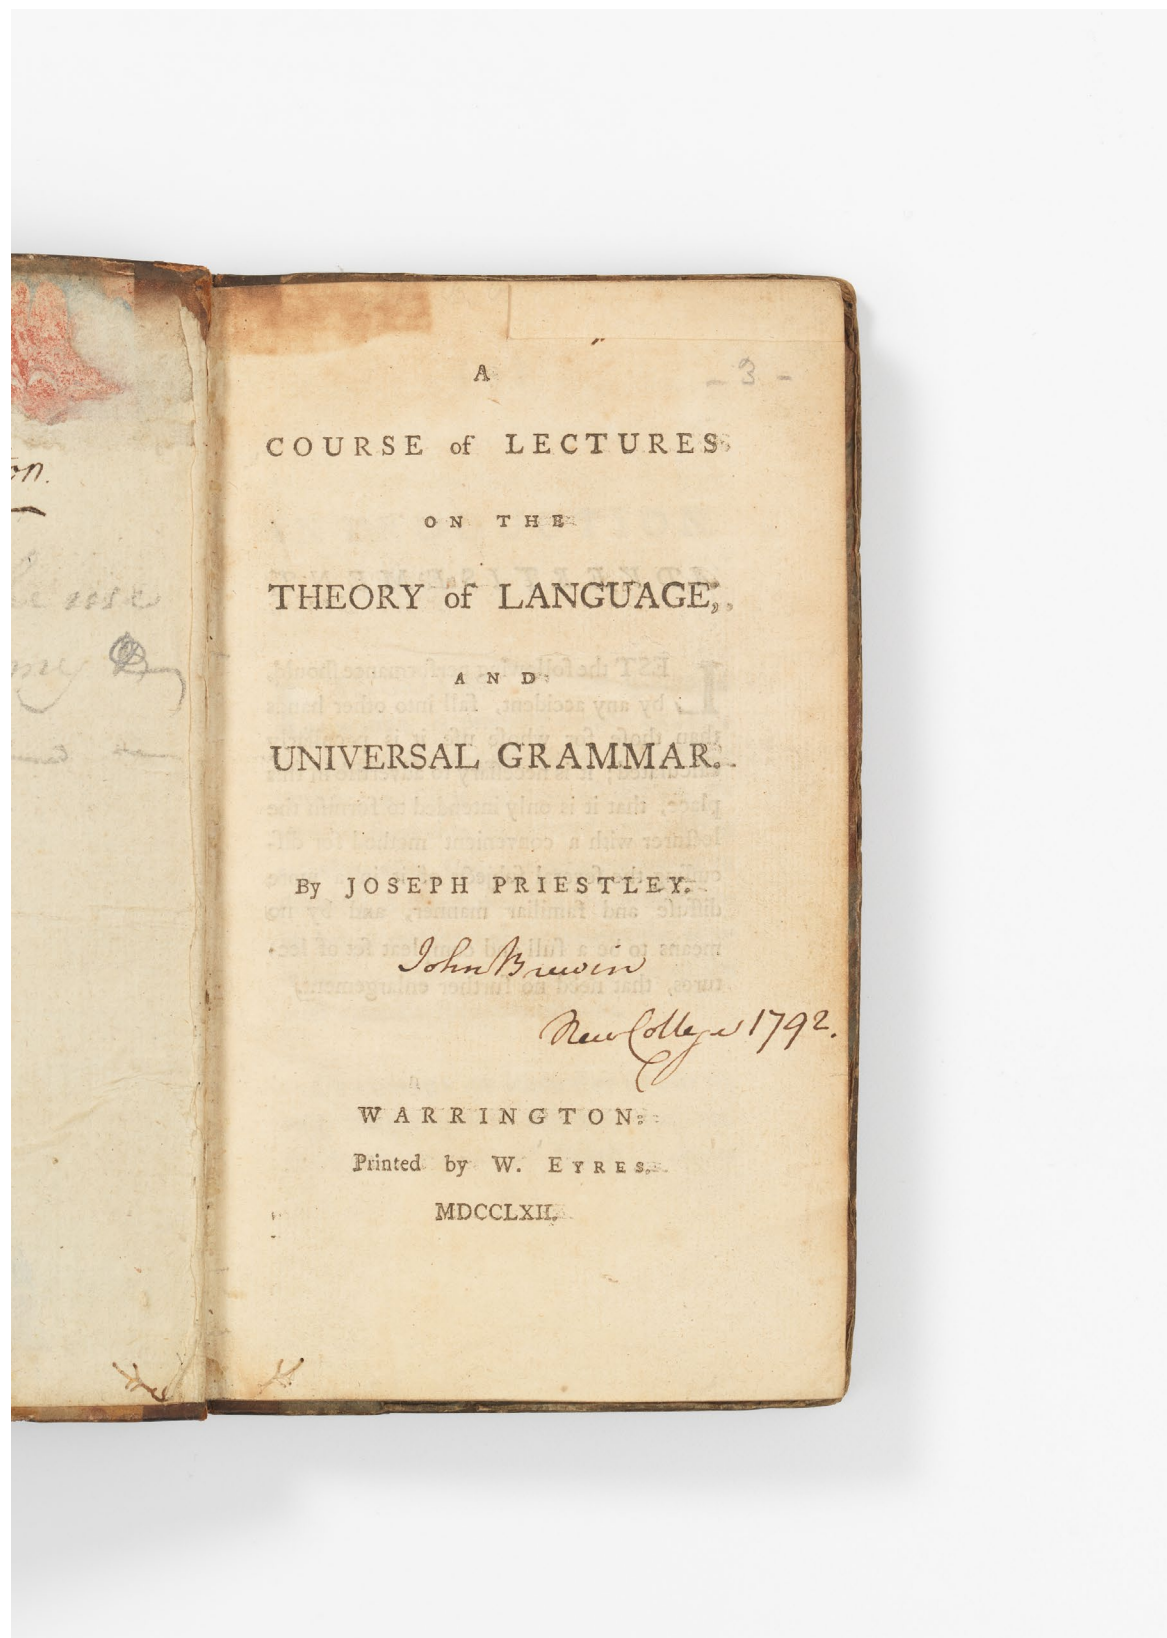 A
- 3 -
COURSE of LECTURES
ON THE
THEORY of LANGUAGE,
AND
UNIVERSAL GRAMMAR.
By JOSEPH PRIESTLEY.
John Brewin
New College 1792.
WARRINGTON:
Printed by W. EYRES.
MDCCLXII.